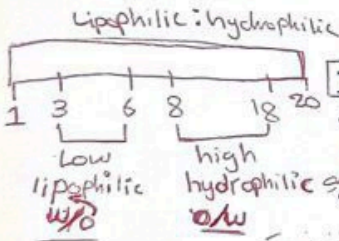 Lipophilic : hydrophilic
1 3 6 8 18 20
Low high
lipophilic hydrophilic
w/o o/w